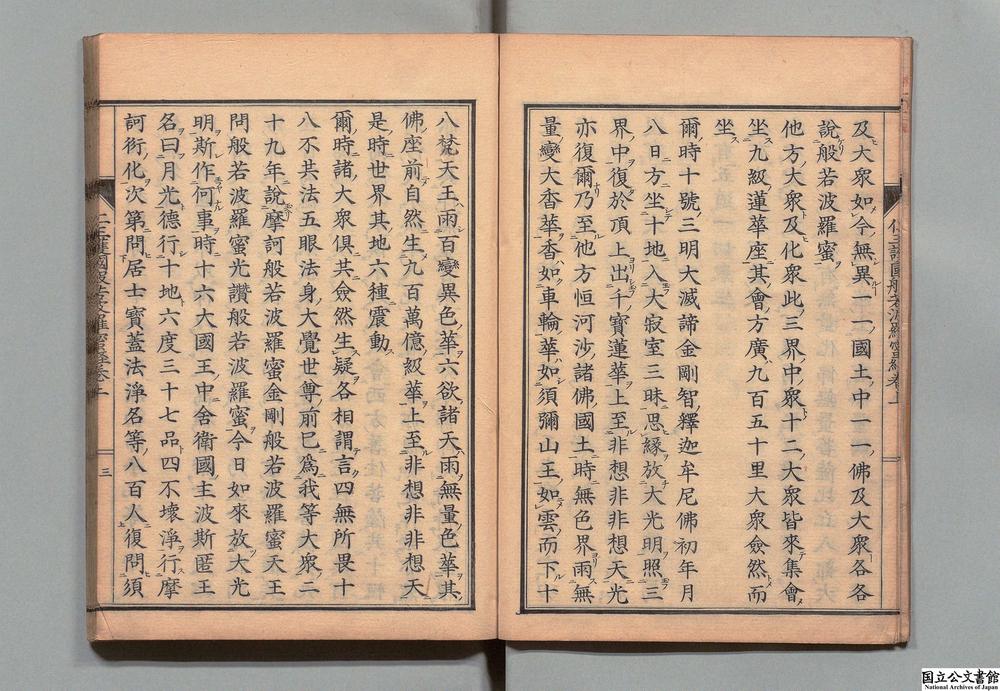 及大衆如今無異一一國土中一一佛及大衆各各
說般若波羅蜜
他方大衆及化衆此三界中衆十二大衆皆來集會
坐九級蓮華座其會方廣九百五十里大衆僉然而
坐
爾時十號三明大滅諦金剛智釋迦牟尼佛初年月
八日方坐十地入大寂室三昧思緣放大光明照三
界中復於頂上出千寶蓮華上至非想非非想天光
亦復爾乃至他方恒河沙諸佛國土時無色界雨無
量變大香華香如車輪華如須彌山王如雲而下十
八梵天王雨百變異色華六欲諸天雨無量色華其
佛座前自然生九百萬億級華上至非想非非想天
是時世界其地六種震動
爾時諸大衆俱共僉然生疑各相謂言四無所畏十
八不共法五眼法身大覺世尊前已爲我等大衆二
十九年說摩訶般若波羅蜜金剛般若波羅蜜天王
問般若波羅蜜光讚般若波羅蜜今日如來放大光
明斯作何事時十六大國王中舍衛國主波斯匿王
名曰月光德行十地六度三十七品四不壞淨行摩
訶衍化次第問居士寶蓋法淨名等八百人復問須
仁王護國般若波羅蜜經卷上
三
国立公文書館
National Archives of Japan